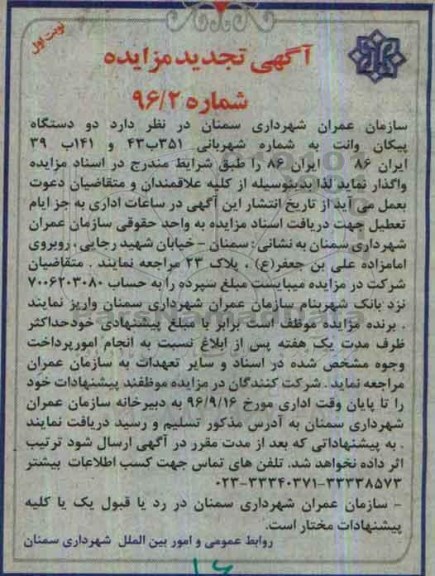 نوبت اول
آگهی تجدید مزایده
شماره ۹۶/۲
سازمان عمران شهرداری سمنان در نظر دارد دو دستگاه
پیکان وانت به شماره شهربانی ۳۵۱ب۴۳ و ۱۴۱ب ۳۹
ایران ۸۶ ایران ۸۶ را طبق شرایط مندرج در اسناد مزایده
واگذار نماید لذا بدینوسیله از کلیه علاقمندان و متقاضیان دعوت
بعمل می آید از تاریخ انتشار این آگهی در ساعات اداری به جز ایام
تعطیل جهت دریافت اسناد مزایده به واحد حقوقی سازمان عمران
شهرداری سمنان به نشانی : سمنان - خیابان شهید رجایی ، روبروی
امامزاده علی بن جعفر(ع) ، پلاک ۲۳ مراجعه نمایند . متقاضیان
شرکت در مزایده میبایست مبلغ سپرده را به حساب ۷۰۰۶۲۰۳۰۸۰
نزد بانک شهربنام سازمان عمران شهرداری سمنان واریز نمایند
. برنده مزایده موظف است برابر با مبلغ پیشنهادی خودحداکثر
ظرف مدت یک هفته پس از ابلاغ نسبت به انجام امورپرداخت
وجوه مشخص شده در اسناد و سایر تعهدات به سازمان عمران
مراجعه نماید . شرکت کنندگان در مزایده موظفند پیشنهادات خود
را تا پایان وقت اداری مورخ ۹۶/۹/۱۶ به دبیرخانه سازمان عمران
شهرداری سمنان به آدرس مذکور تسلیم و رسید دریافت نمایند
. به پیشنهاداتی که بعد از مدت مقرر در آگهی ارسال شود ترتیب
اثر داده نخواهد شد. تلفن های تماس جهت کسب اطلاعات بیشتر
۰۲۳-۳۳۳۴۰۳۷۱-۳۳۳۳۸۵۷۳
- سازمان عمران شهرداری سمنان در رد یا قبول یک یا کلیه
پیشنهادات مختار است.
روابط عمومی و امور بین الملل شهرداری سمنان